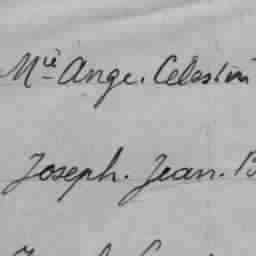 Mie Ange. Celestin
Joseph. Jean.